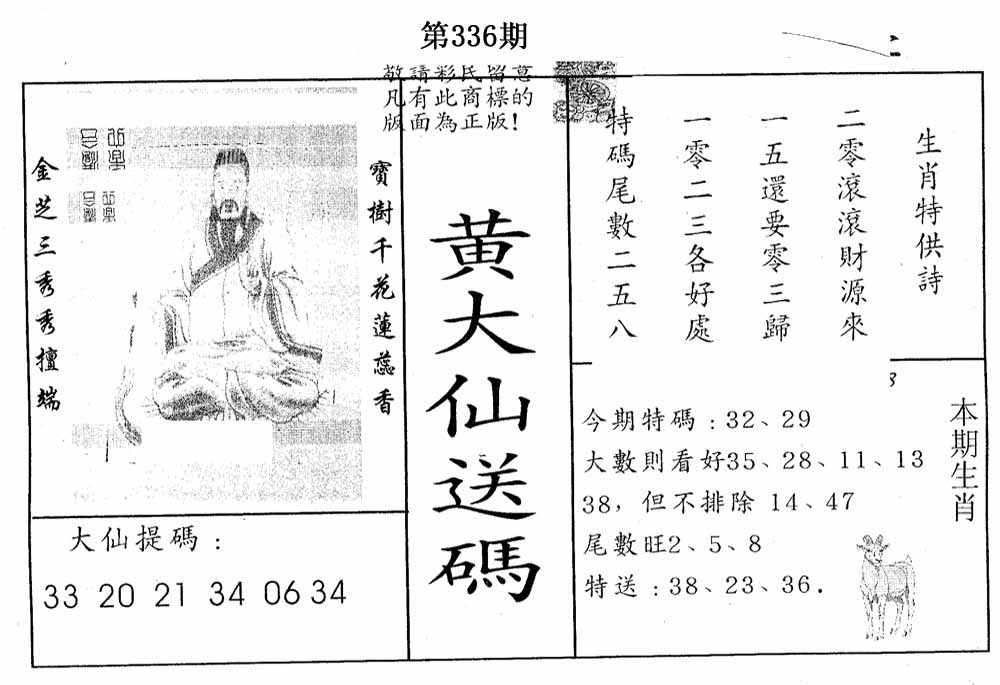 第336期
敬請彩民留意
凡有此商標的
版面為正版!
生肖特供詩
二零滾滾財源來
一五還要零三歸
一零二三各好處
特碼尾數二五八
黄大仙送碼
寶樹千花蓮蕊香
金芝三秀秀擅端
大仙提碼:
33 20 21 34 06 34
本期生肖
今期特碼:32、29
大數則看好35、28、11、13
38，但不排除 14、47
尾數旺2、5、8
特送:38、23、36.